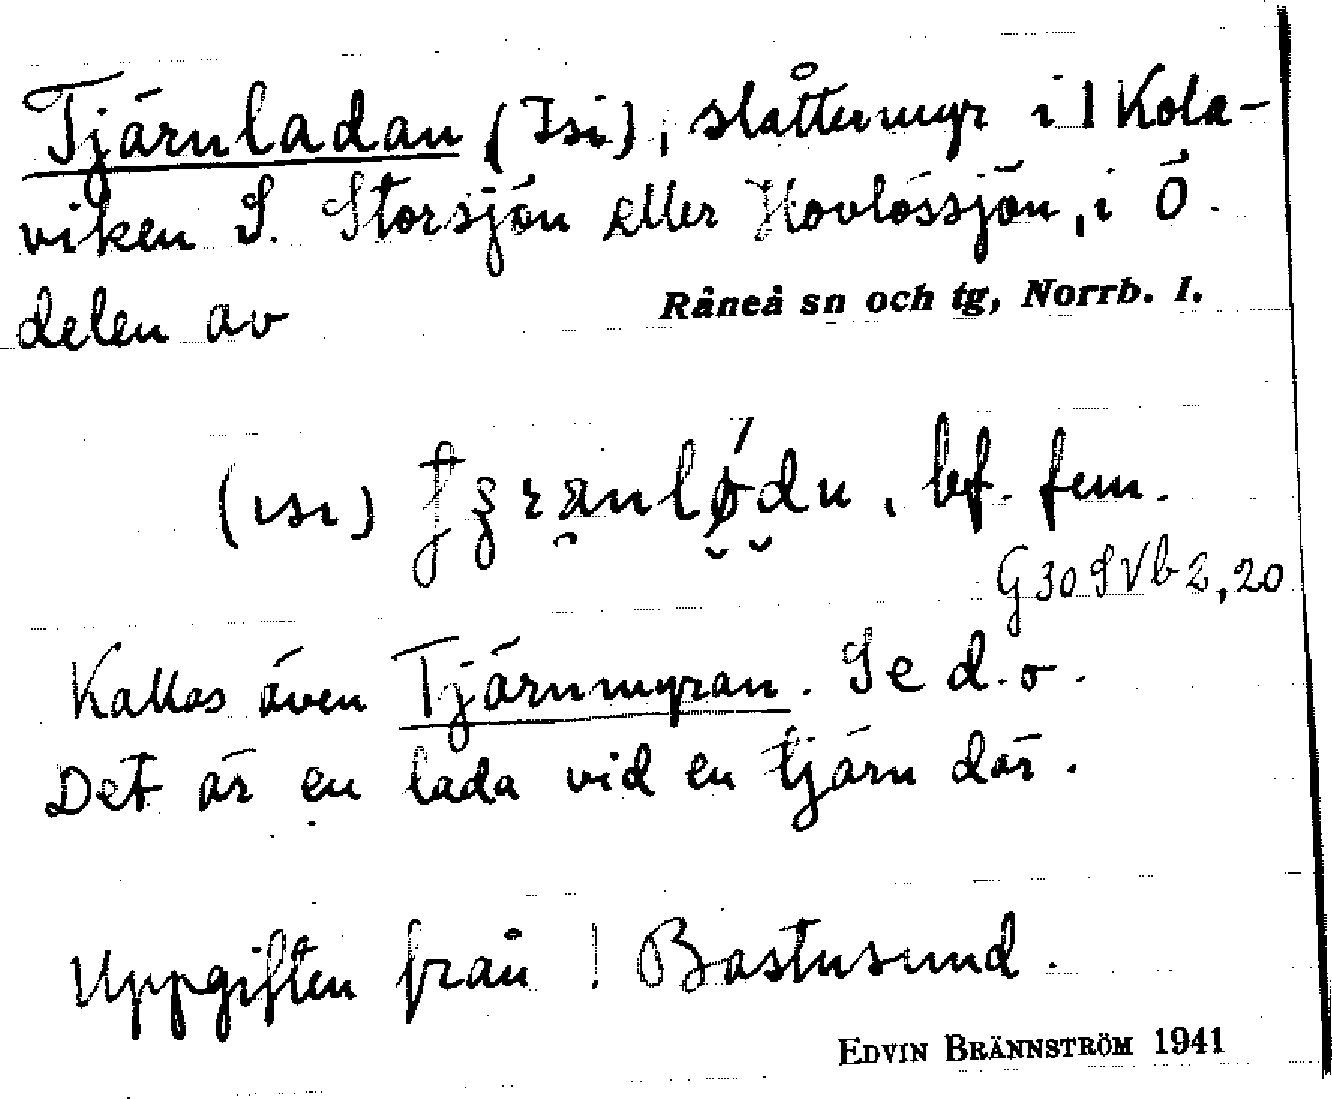 Tjärnladan (Isi), slåttermyr i l Kola-
viken S. Storsjön eller Hovlössjön, i Ö.
delen av Råneå sn och tg, Norrb. l.
(ısı) , bf. fem.
G 30 S Vb 2,20
Kallas även Tjärnmyran. Se d.o.
Det är en lada vid en tjärn där.
Uppgiften från ! Bastusund.
EDVIN BRÄNNSTRÖM 1941